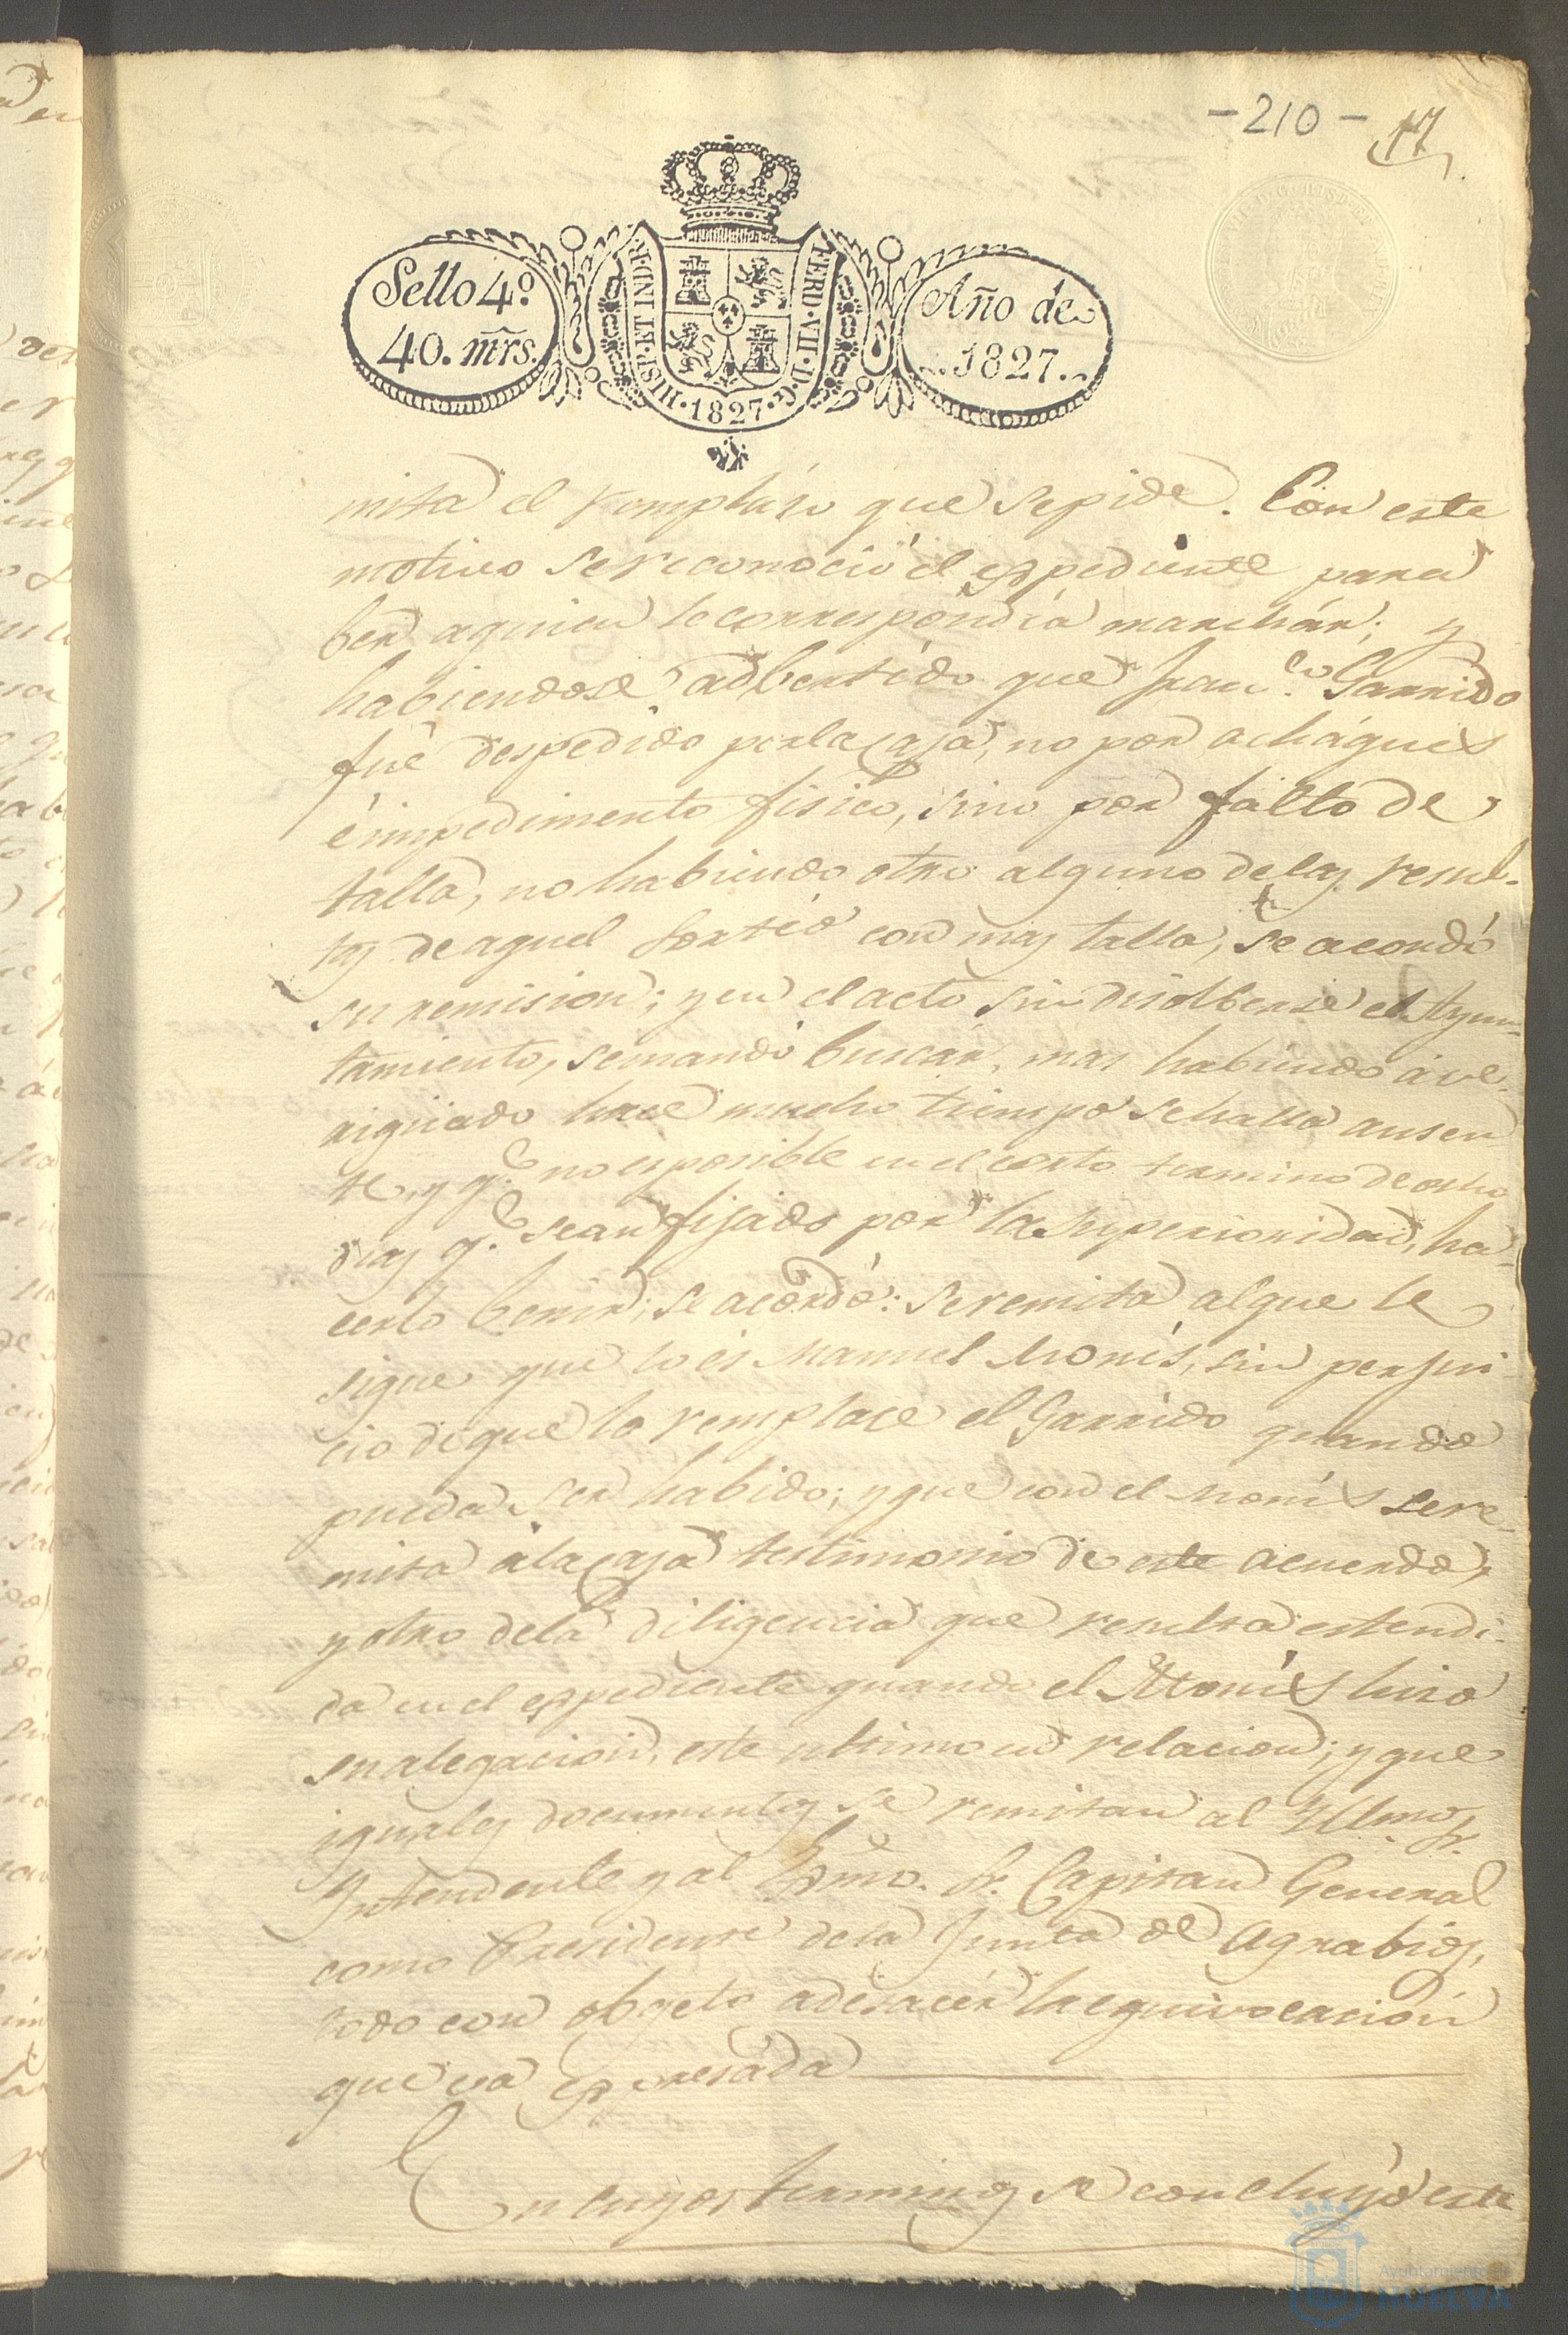 -210-
17
Sello 4º
40. mrs.
FERD·VII·D·G·
·1827·
HISP·ET·IND·R·
Año de
1827.
mita el remplázo que se pide. Con este
motivo se reconoció el expediente para
ber a quien le correspondia marchár; y
habiendose adbertido que Fran.co Garrido
fué despedido por la caja, no por acháques
é impedimento fisico, sino por falto de
talla, no habiendo otro alguno de las resul-
tas de aquel sortéo con mas talla, se acordó
su remision; y en el acto sin disolberse el Ayun-
tamiento, se mandó buscár, mas habiendo ave-
rigüado hace mucho tiempo se halla ausen
te, y q.e no es posible en el corto termino de ocho
dias q.e sean fijado por la superioridad, ha-
cerlo benir; se acordó: se remita al que le
sigue que lo és Manuel Monís, sin perjui
cio de que lo remplace el Garrido quando
pueda ser habido; y que con el Monís se re-
mita a la caja testimonio de este acuerdo,
y otro de la diligencia que resulta estendi-
da en el expediente quando el Monís hizo
su alegacion, este ultimo en relacion; y que
iguales documentos se remitan al Yllmo. Sr.
Yntendente y al Exmo. Sr. Capitan General
como Presidente de la Junta de Agrabios,
todo con objeto a desacér la equivocación
que va expresáda
En cuyos terminos se concluyó este
Ayuntamiento de
HUELVA